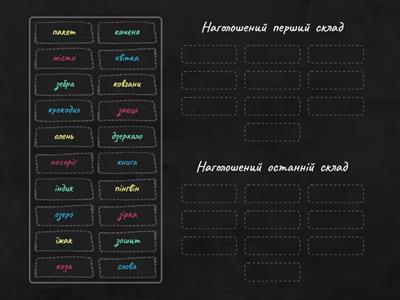 Наголошений перший склад
пакет каченя
місто квітка
зебра ковзани
крокодил заєць
олень дзеркало
носоріг книга
Наголошений останній склад
індик пінгвін
озеро зірка
їжак зошит
коза слова